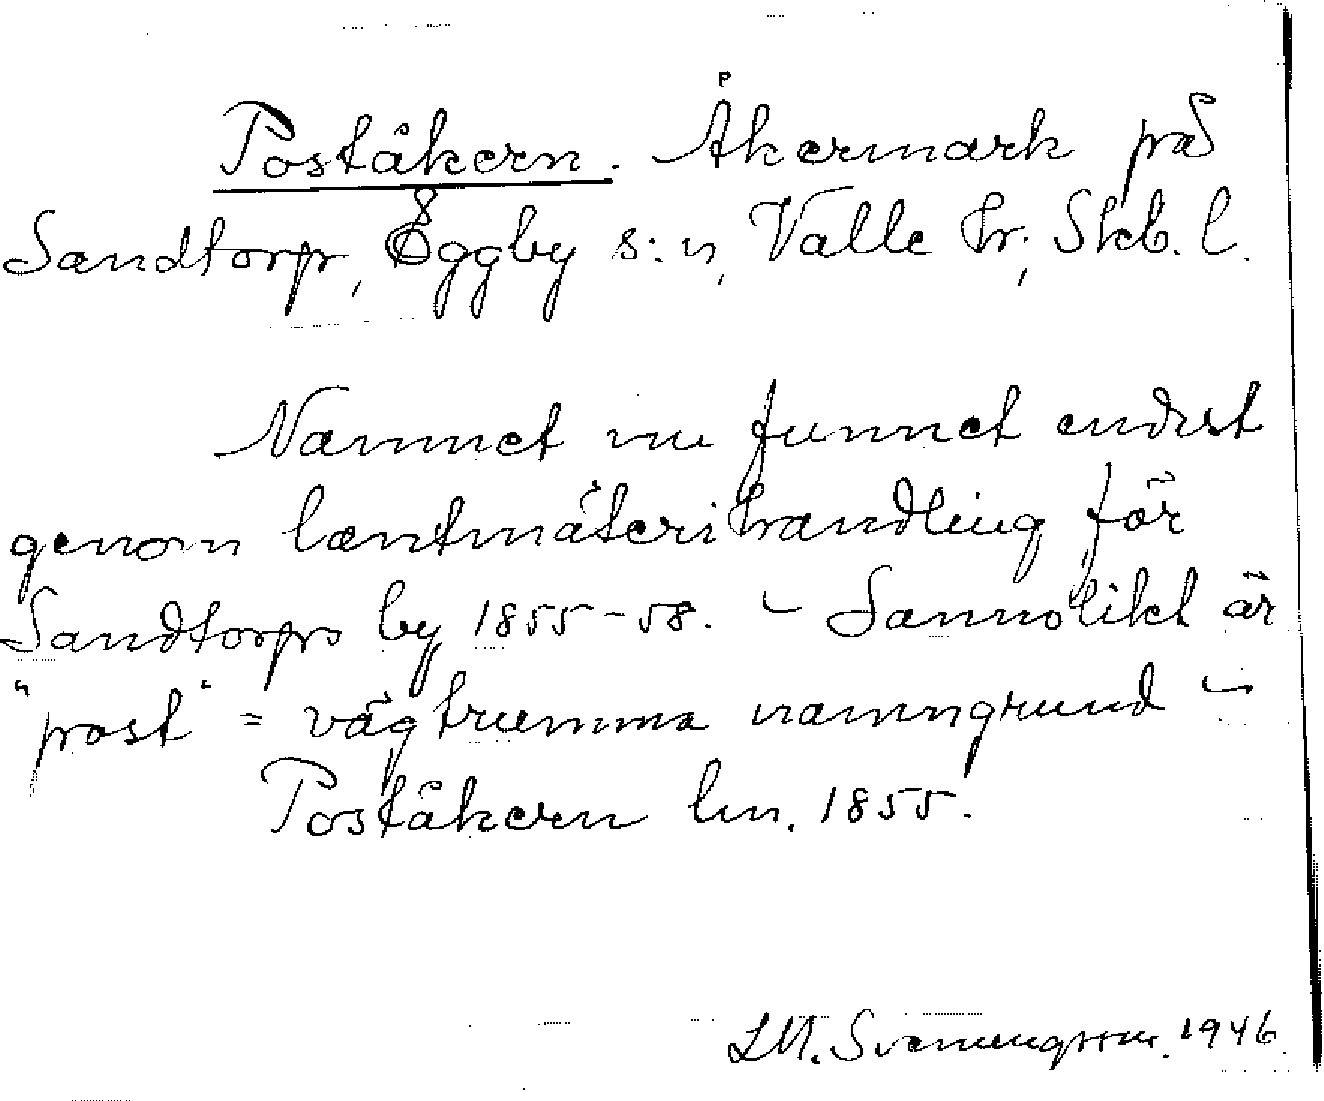 Poståkern. Åkermark på
Sandtorp, Eggby s:n, Valle hr, Skb. l.
Namnet nu funnet endast
genom lantmäterihandling för
Sandtorps by 1855-58. - Sannolikt är
"post" = vägtrumma namngrund -
Poståkern lm. 1855.
L.M. Svenungsson. 1946.